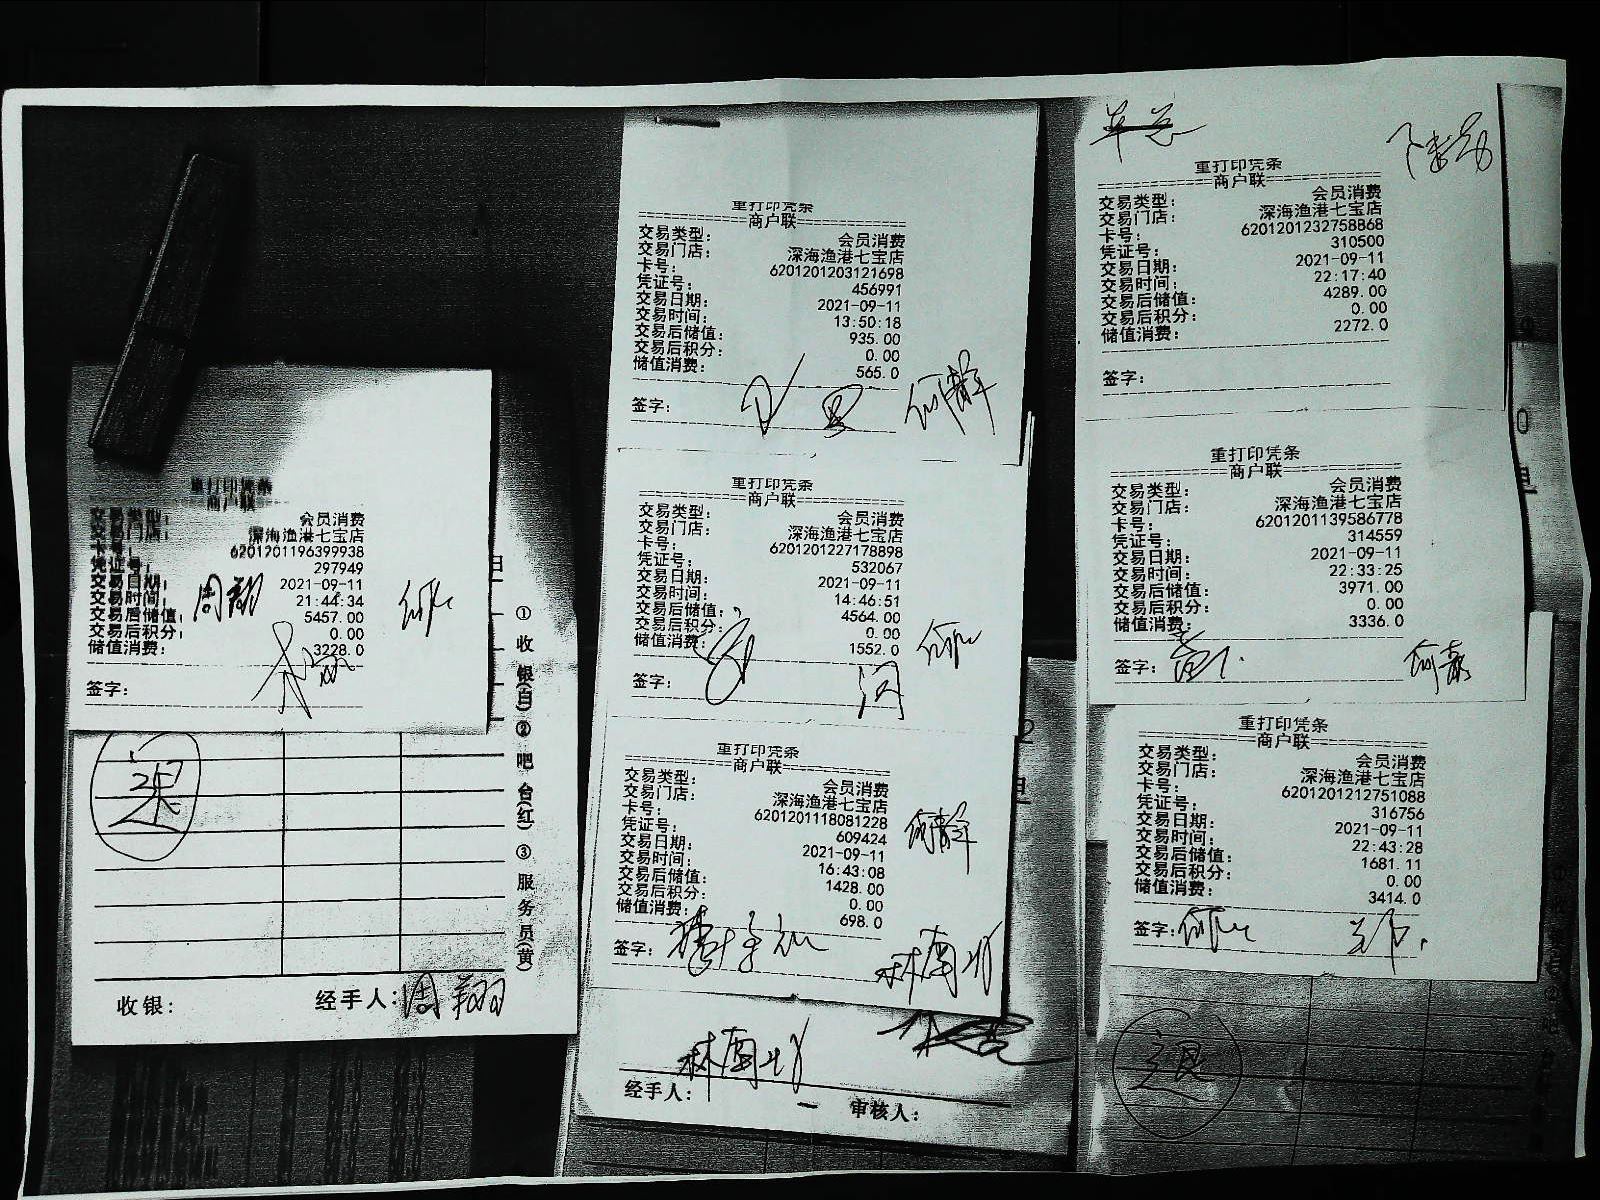 重打印凭条
商户联
交易类型: 会员消费
交易门店: 深海渔港七宝店
卡号: 6201201196399938
凭证号: 297949
交易日期: 2021-09-11
交易时间: 21:44:34
交易后储值: 5457.00
交易后积分: 0.00
储值消费: 3228.0
周翔
签字:
退
①收银(白)②吧台(红)③服务员(黄)
收银:
经手人: 周翔
重打印凭条
商户联
交易类型: 会员消费
交易门店: 深海渔港七宝店
卡号: 6201201203121698
凭证号: 456991
交易日期: 2021-09-11
交易时间: 13:50:18
交易后储值: 935.00
交易后积分: 0.00
储值消费: 565.0
签字: 何静
重打印凭条
商户联
交易类型: 会员消费
交易门店: 深海渔港七宝店
卡号: 6201201227178898
凭证号: 532067
交易日期: 2021-09-11
交易时间: 14:46:51
交易后储值: 4564.00
交易后积分: 0.00
储值消费: 1552.0
签字:
重打印凭条
商户联
交易类型: 会员消费
交易门店: 深海渔港七宝店
卡号: 6201201118081228
凭证号: 609424
交易日期: 2021-09-11
交易时间: 16:43:08
交易后储值: 1428.00
交易后积分: 0.00
储值消费: 698.0
签字:
经手人:
审核人:
重打印凭条
商户联
交易类型: 会员消费
交易门店: 深海渔港七宝店
卡号: 6201201232758868
凭证号: 310500
交易日期: 2021-09-11
交易时间: 22:17:40
交易后储值: 4289.00
交易后积分: 0.00
储值消费: 2272.0
签字:
重打印凭条
商户联
交易类型: 会员消费
交易门店: 深海渔港七宝店
卡号: 6201201139586778
凭证号: 314559
交易日期: 2021-09-11
交易时间: 22:33:25
交易后储值: 3971.00
交易后积分: 0.00
储值消费: 3336.0
签字:
重打印凭条
商户联
交易类型: 会员消费
交易门店: 深海渔港七宝店
卡号: 6201201212751088
凭证号: 316756
交易日期: 2021-09-11
交易时间: 22:43:28
交易后储值: 1681.11
交易后积分: 0.00
储值消费: 3414.0
签字:
退